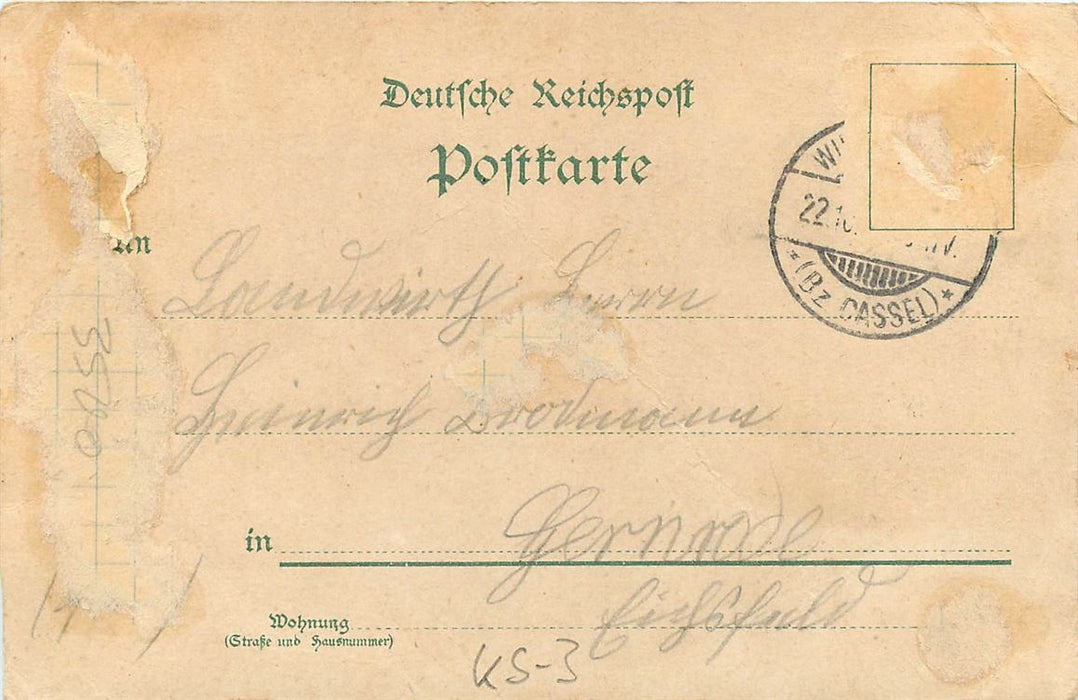 Deutsche Reichspost
Postkarte
An
Landwirth Herrn
Heinrich Brodmann
in Gernrode
Eichsfeld
Wohnung
(Straße und Hausnummer)
22.10.
* (Bz CASSEL) *
KS-3